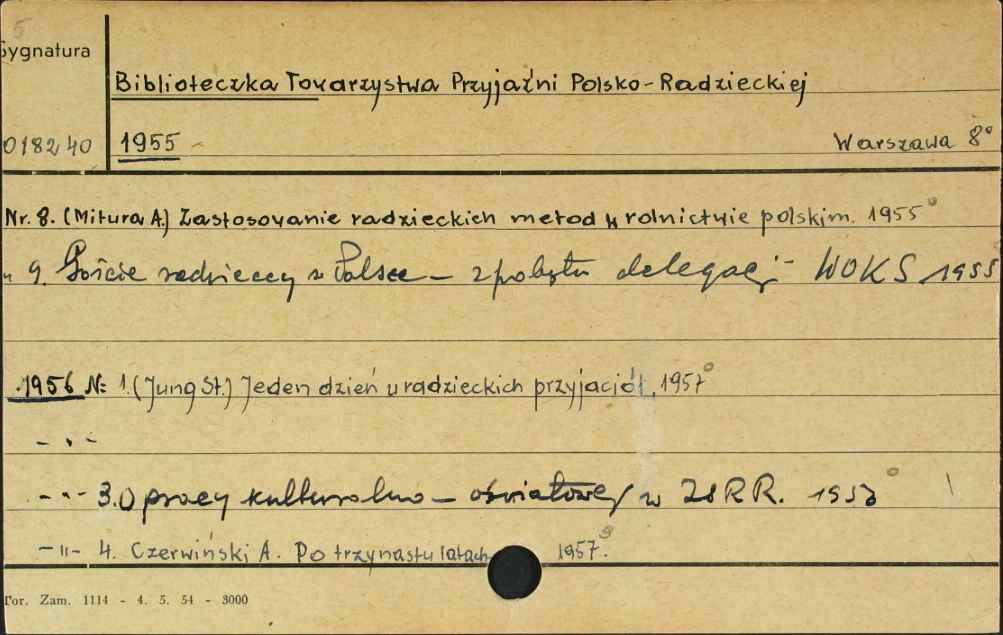 5
Sygnatura
Biblioteczka Towarzystwa Przyjaźni Polsko-Radzieckiej
018240 1955 Warszawa 8°
Nr. 8. (Mitura A.) Zastosowanie radzieckich metod w rolnictwie polskim. 1955°
" 9. Goście radzieccy w Polsce – z pobytu delegacji WOKS 1955
1956 Nr 1. (Jung St.) Jeden dzień u radzieckich przyjaciół, 1957°
– " –
– " – 3. O pracy kulturalno – oświatowej w ZSRR. °
– " – 4. Czerwiński A. Po trzynastu latach 1957.
Tor. Zam. 1114 - 4. 5. 54 - 3000